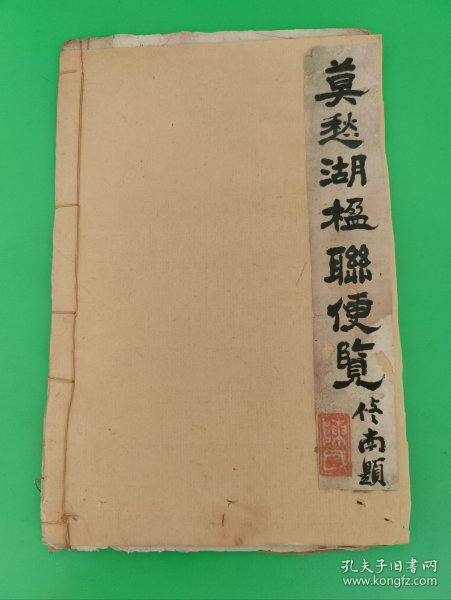 莫愁湖楹聯便覽
修南題
陳氏
孔夫子旧书网
www.kongfz.com